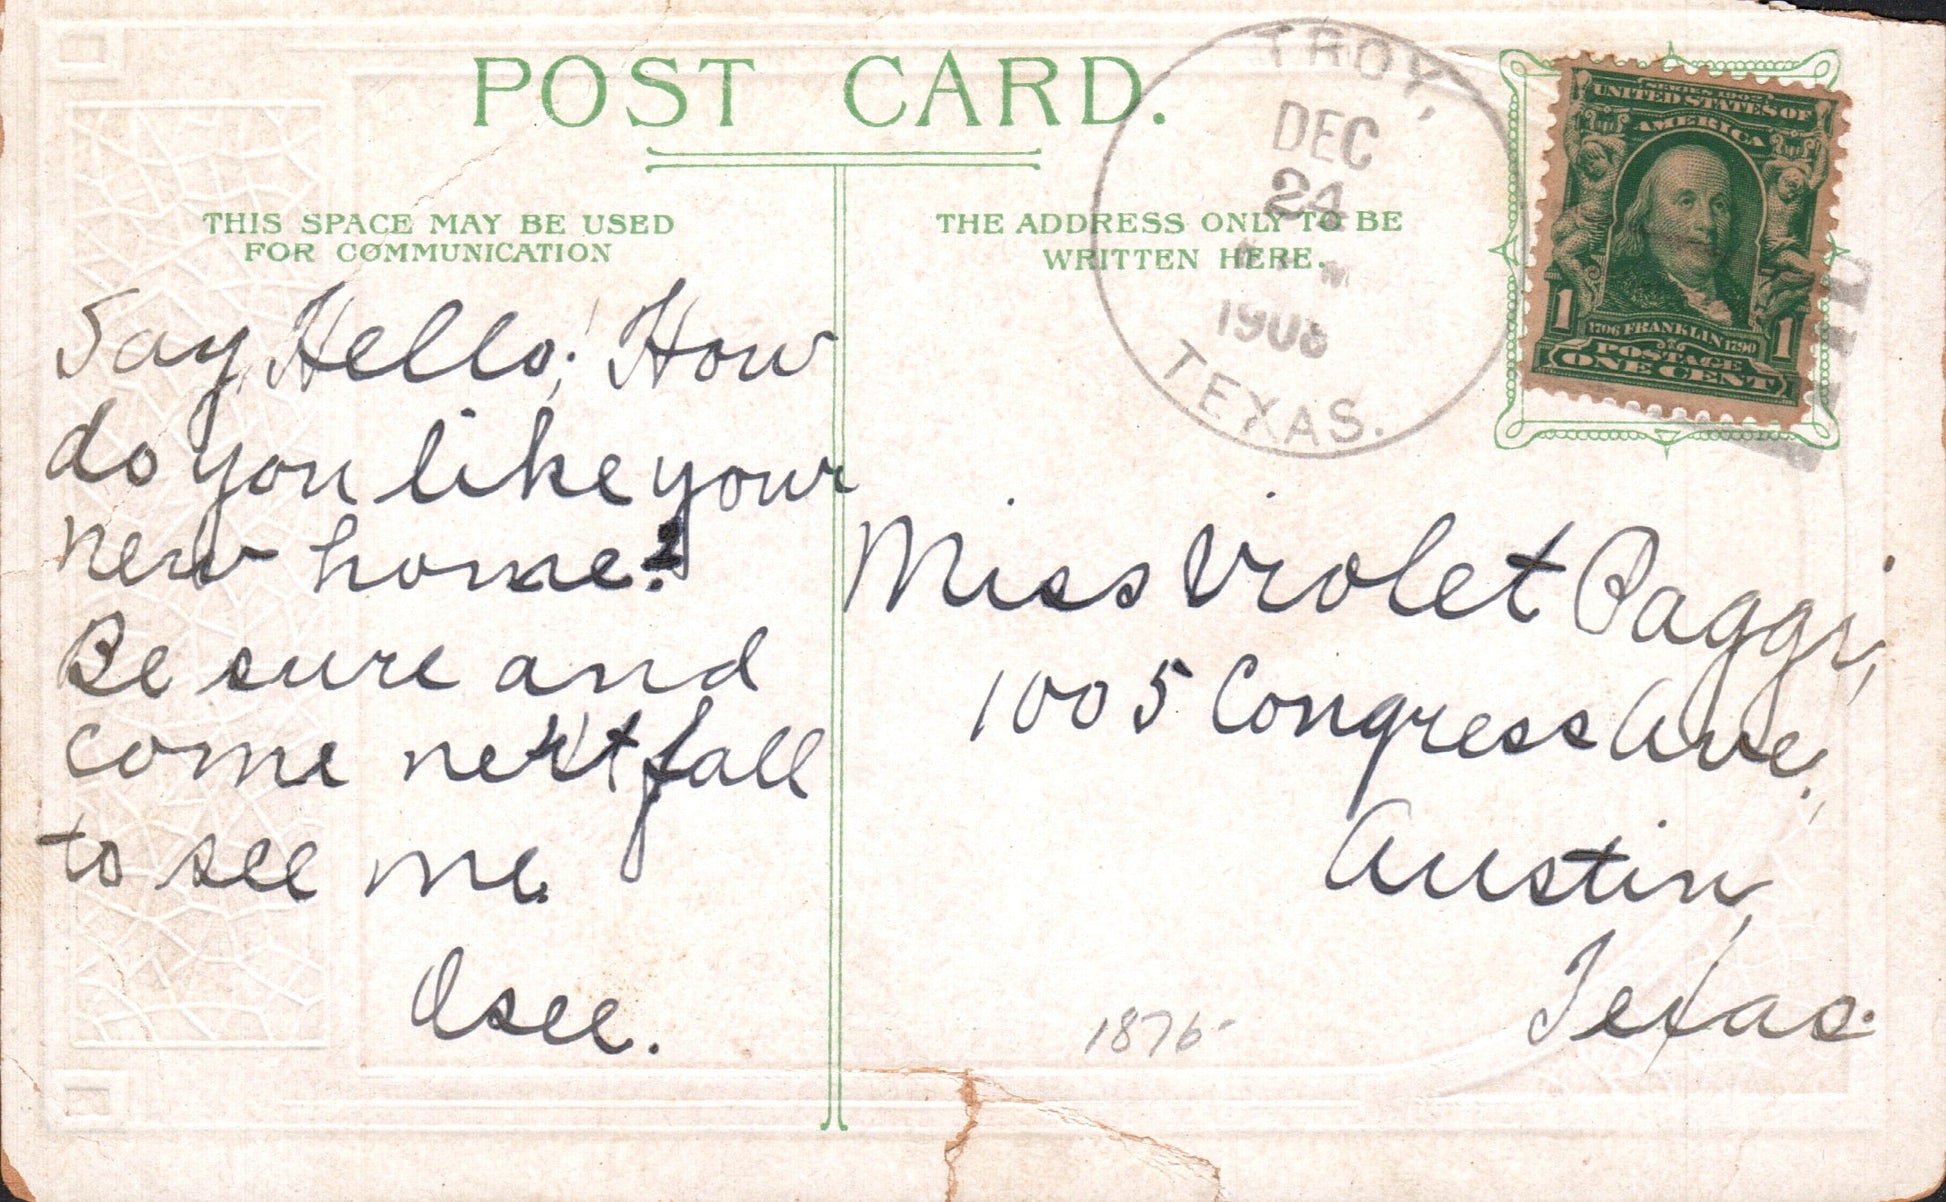 POST CARD.
THIS SPACE MAY BE USED
FOR COMMUNICATION
Say, Hello! How
do you like your
new home?
Be sure and
come next fall
to see me.
Osee.
THE ADDRESS ONLY TO BE
WRITTEN HERE.
TROY,
DEC
24
M
1908
TEXAS.
SERIES 1902
UNITED STATES OF
AMERICA
1 1
1706 FRANKLIN 1790
POSTAGE
ONE CENT
Miss Violet Paggi,
1005 Congress Ave.,
Austin,
Texas.
1876-